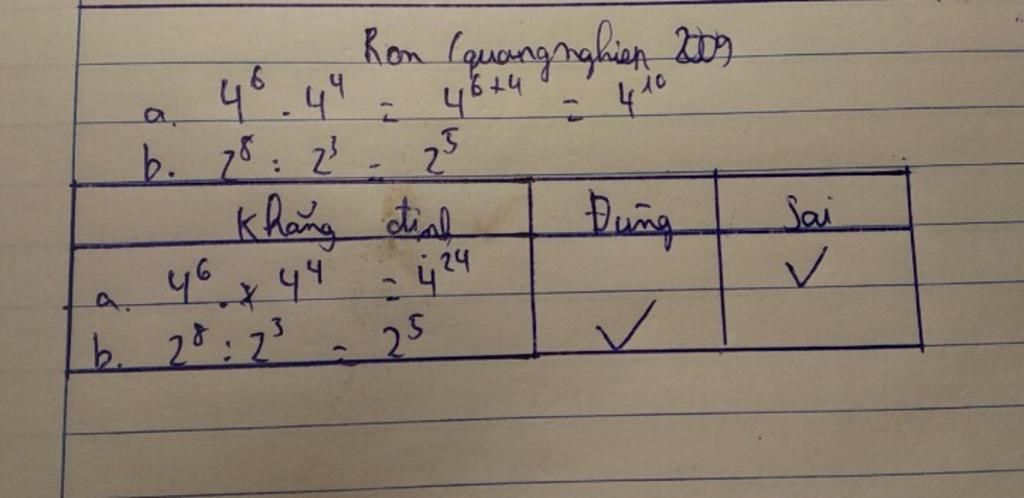 Ron (quangnghiep 2009
a. 4⁶ . 4⁴ = 4⁶⁺⁴ = 4¹⁰
b. 2⁸ : 2³ = 2⁵
Khẳng định Đúng Sai
a. 4⁶ . x 4⁴ = 4²⁴ ✓
b. 2⁸ : 2³ = 2⁵ ✓